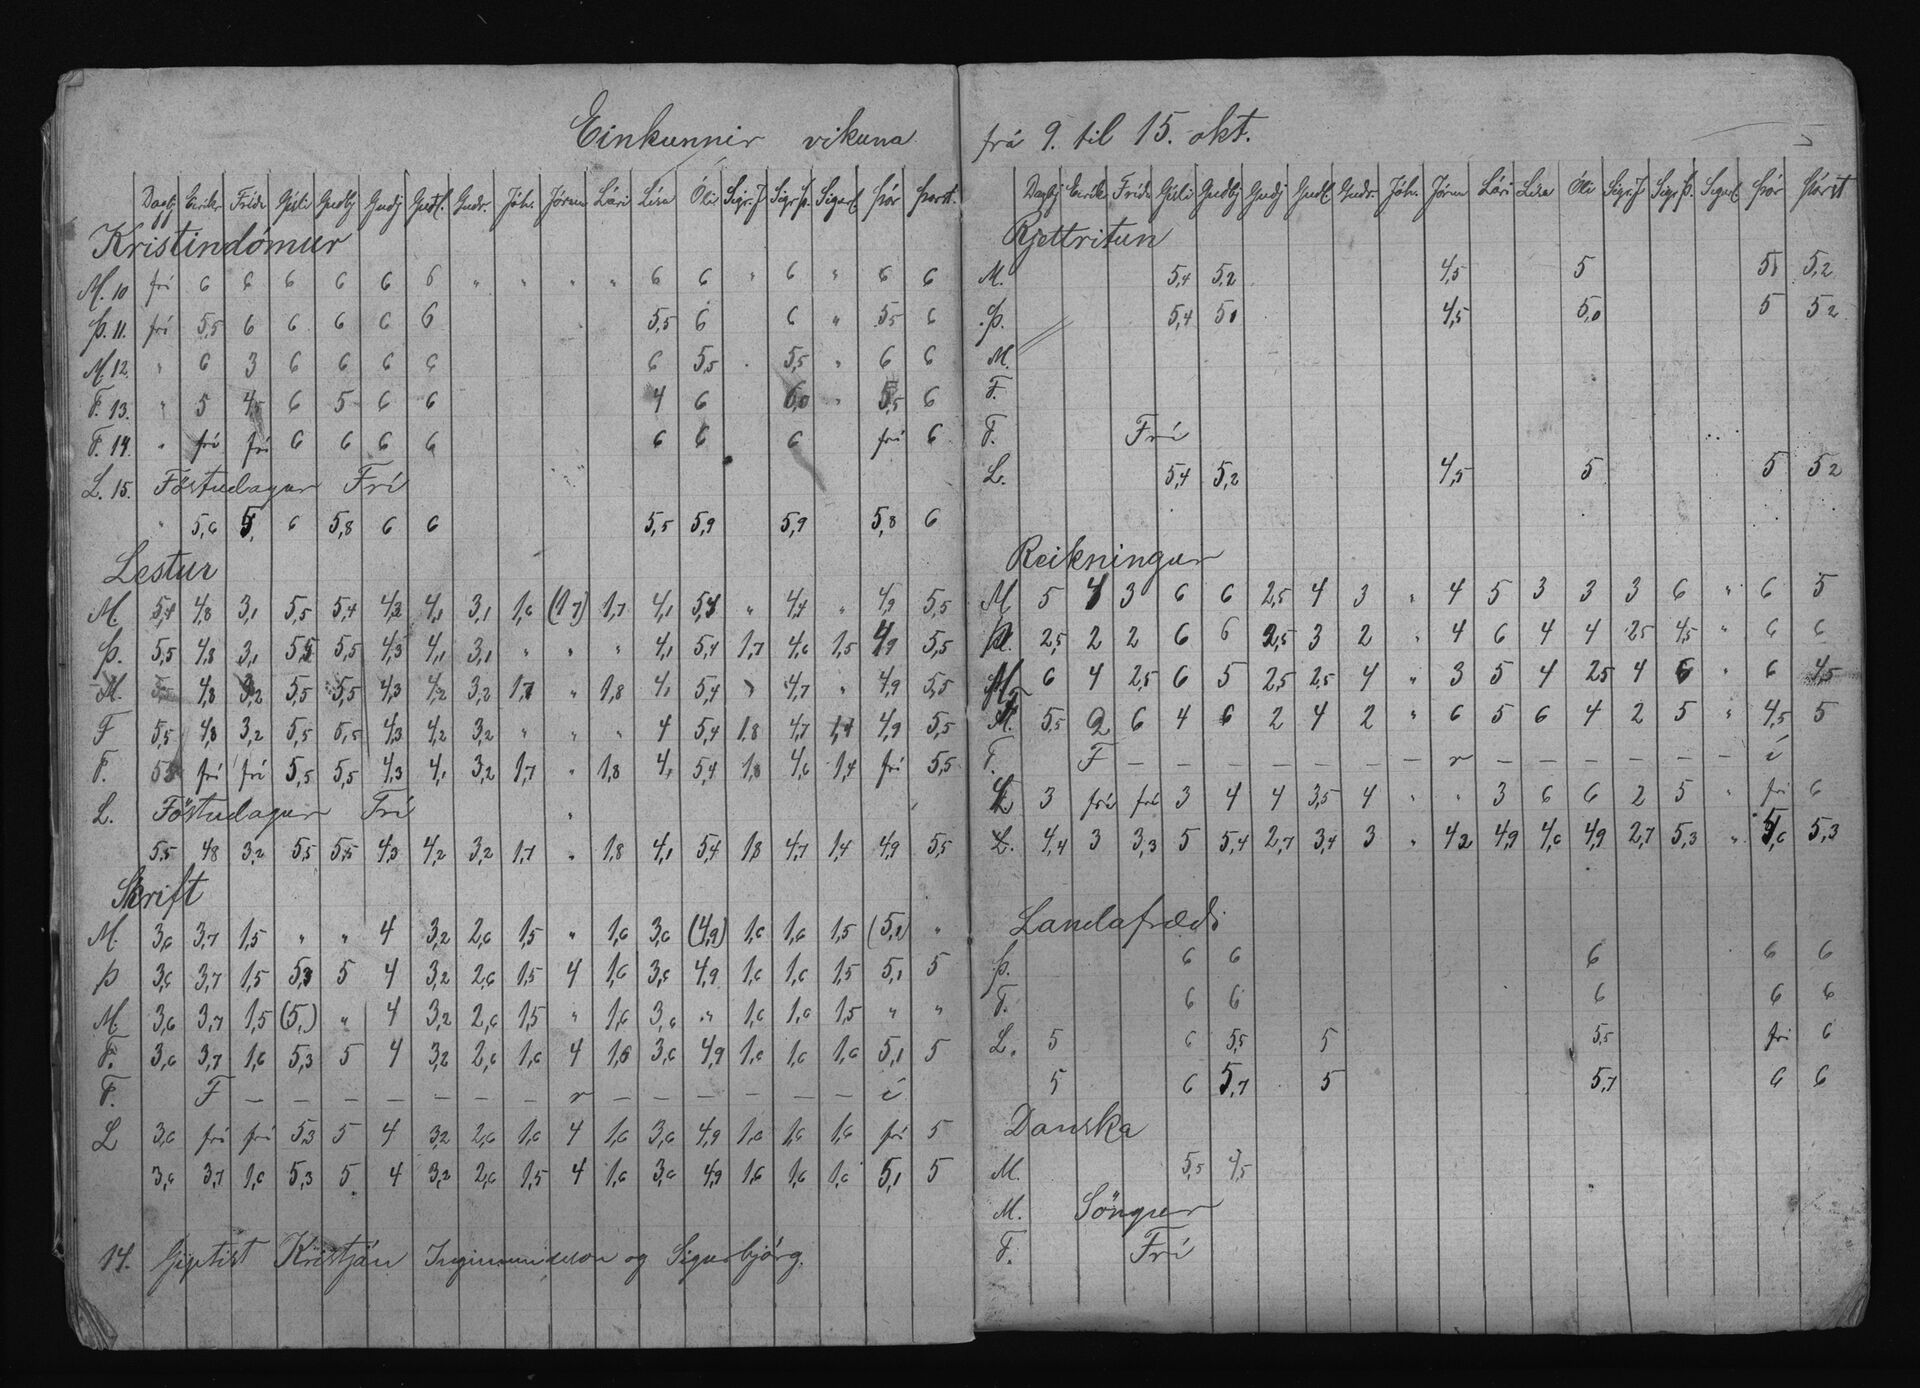 Einkunnir vikuna
Dagbj Eirikr Fride Gísli Gudbj Gudj Gudl. Gudr. Jóh. Jórunn Lári Lísa Óli Sigr. J Sigr. Þ. Sigurl. Þór Þorst.
Kristindómur
M. 10 fri 6 6 6 6 6 6 " " " " 6 6 " 6 " 6 6
Þ. 11. fri 5,5 6 6 6 6 6 5,5 6 6 " 5,5 6
M. 12. " 6 3 6 6 6 6 6 5,5 5,5 " 6 6
F. 13. " 5 4,5 6 5 6 6 4 6 6,0 " 5,5 6
F. 14. " fri fri 6 6 6 6 6 6 6 fri 6
L. 15. Föstudagur Frí
" 5,6 5, 6 5,8 6 6 5,5 5,9 5,9 5,8 6
Lestur
M. 5,4 4,8 3,1 5,5 5,4 4,2 4,1 3,1 1,6 (1,7) 1,7 4,1 5,4 " 4,4 " 4,9 5,5
Þ. 5,5 4,8 3,1 5,5 5,5 4,3 4,1 3,1 " " " 4,1 5,4 1,7 4,6 1,5 4,9 5,5
M. 5,5 4,8 3,2 5,5 5,5 4,3 4,2 3,2 1,7 " 1,8 4,1 5,4 " 4,7 " 4,9 5,5
F 5,5 4,8 3,2 5,5 5,5 4,3 4,2 3,2 " " " 4 5,4 1,8 4,7 1,4 4,9 5,5
F. 5,5 fri fri 5,5 5,5 4,3 4,1 3,2 1,7 " 1,8 4,1 5,4 1,8 4,6 1,4 fri 5,5
L. Föstudagur Frí "
5,5 4,8 3,2 5,5 5,5 4,3 4,2 3,2 1,7 " 1,8 4,1 5,4 1,8 4,7 1,4 4,9 5,5
Skrift
M. 3,6 3,7 1,5 " " 4 3,2 2,6 1,5 " 1,6 3,6 (4,9) 1,6 1,6 1,5 (5,1) "
Þ 3,6 3,7 1,5 5,3 5 4 3,2 2,6 1,5 4 1,6 3,6 4,9 1,6 1,6 1,5 5,1 5
M. 3,6 3,7 1,5 (5,) " 4 3,2 2,6 1,5 " 1,6 3,6 " 1,6 1,6 1,5 " "
F. 3,6 3,7 1,6 5,3 5 4 3,2 2,6 1,6 4 1,6 3,6 4,9 1,6 1,6 1,6 5,1 5
F. F – – – – – – – r – – – – – – í
L 3,6 fri fri 5,3 5 4 3,2 2,6 1,6 4 1,6 3,6 4,9 1,6 1,6 1,6 fri 5
3,6 3,7 1,6 5,3 5 4 3,2 2,6 1,5 4 1,6 3,6 4,9 1,6 1,6 1,6 5,1 5
14. Giptist Kristján Ingimundsson og Sigurbjörg.
frá 9. til 15. okt.
Dagbj Eirikr Fride Gísli Gudbj Gudj Gudl. Gudr. Jóh. Jórun Lári Lísa Óli Sigr. J Sigr. Þ. Sigurl. Þór Þorst
Rjettritun
M. 5,4 5,2 4,5 5 5,1 5,2
Þ. 5,4 5,1 4,5 5,0 5 5,2
M.
F.
F. Frí
L. 5,4 5,2 4,5 5 5 5,2
Reikningur
M 5 4 3 6 6 2,5 4 3 " 4 5 3 3 3 6 " 6 5
Þ. 2,5 2 2 6 6 2,5 3 2 " 4 6 4 4 2,5 4,5 " 6 6
M. 6 4 2,5 6 5 2,5 2,5 4 " 3 5 4 2,5 4 6 " 6 4,5
F. 5,5 2 6 4 6 2 4 2 " 6 5 6 4 2 5 " 4,5 5
F. F – – – – – – – r – – – – – – í
L 3 fri fri 3 4 4 3,5 4 " " 3 6 6 2 5 " fri 6
L. 4,4 3 3,3 5 5,4 2,7 3,4 3 " 4,2 4,9 4,6 4,9 2,7 5,3 " 5,6 5,3
Landafrædi
Þ. 6 6 6 6 6
F. 6 6 6 6 6
L. 5 6 5,5 5 5,5 fri 6
5 6 5,7 5 5,7 6 6
Danska
M. 5,5 4,5
M. Söngur
F. Frí